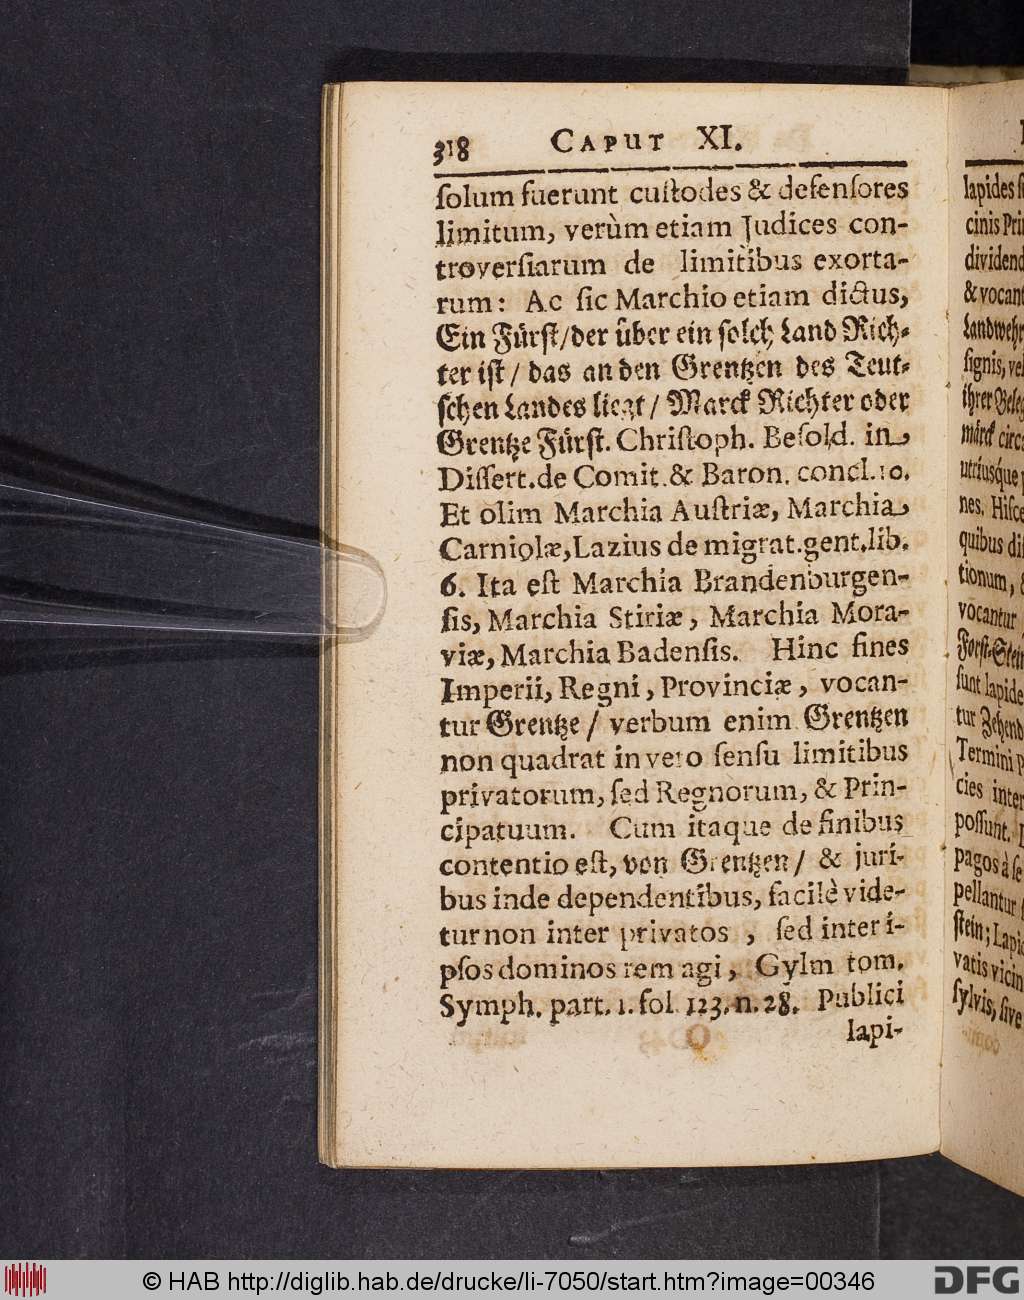 318 CAPUT XI.
ſolum fuerunt cuſtodes & defenſores
limitum, verùm etiam Judices con-
troverſiarum de limitibus exorta-
rum: Ac ſic Marchio etiam dictus,
Ein Fürſt/der über ein ſolch Land Rich-
ter iſt / das an den Grentzen des Teut-
ſchen Landes liegt / Marck Richter oder
Grentze Fürſt. Chriſtoph. Beſold. in
Diſſert. de Comit. & Baron. concl. 10.
Et olim Marchia Auſtriæ, Marchia
Carniolæ, Lazius de migrat. gent. lib.
6. Ita eſt Marchia Brandenburgen-
ſis, Marchia Stiriæ, Marchia Mora-
viæ, Marchia Badenſis. Hinc fines
Imperii, Regni, Provinciæ, vocan-
tur Grentze / verbum enim Grentzen
non quadrat in vero ſenſu limitibus
privatorum, ſed Regnorum, & Prin-
cipatuum. Cum itaque de finibus
contentio eſt, von Grentzen / & juri-
bus inde dependentibus, facilè vide-
tur non inter privatos, ſed inter i-
pſos dominos rem agi, Gylm tom.
Symph. part. 1. fol. 123. n. 28. Publici
lapi-
lapides
cinis
dividend
& vocant
Landwehr
ſignis, vel
ihrer
marck circa
utriusque
nes. Hiſce
quibus
tionum,
vocantur
Forſt-Stein
ſunt lapide
tur Zehend
Termini
cies inter
poſſunt.
pagos à ſe
pellantur
ſtein; Lapi
vatis vicin
ſylvis, ſive
© HAB http://diglib.hab.de/drucke/li-7050/start.htm?image=00346
DFG